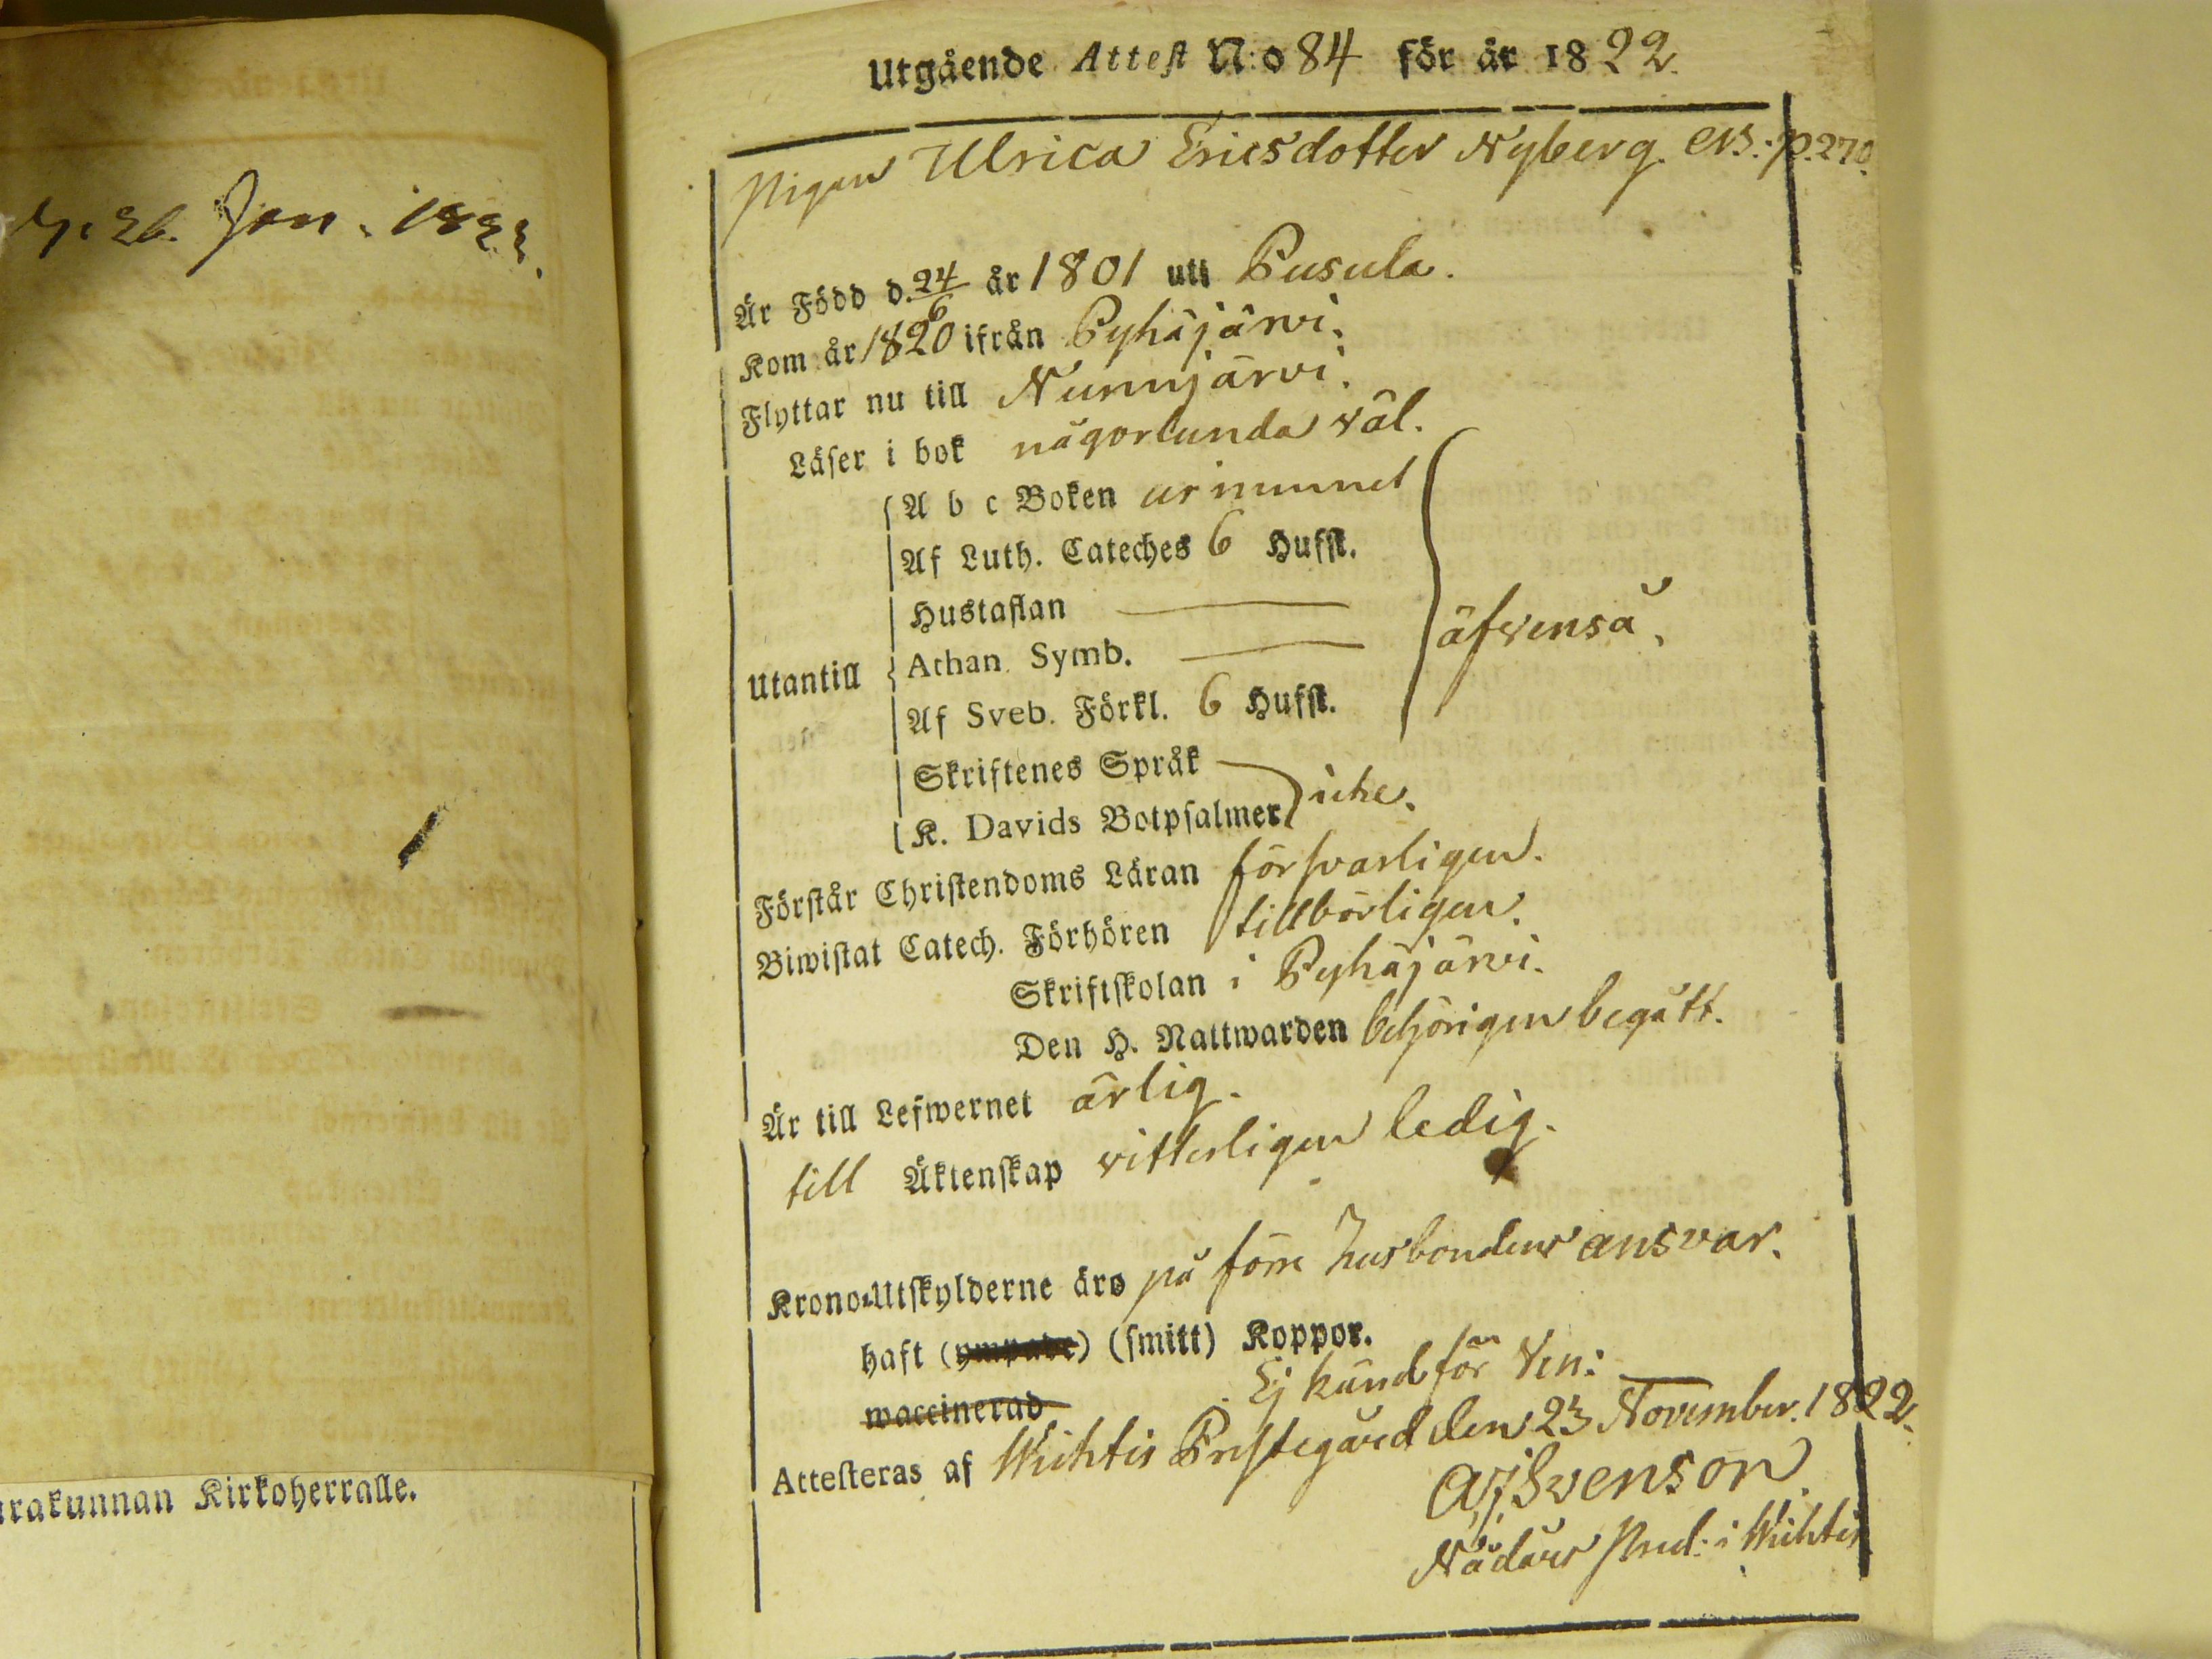 Jan. 182
arakunnan Kirkoherralle.
Utgående Attest N:o 84 för år 1822.
Pigan Ulrica Ericsdotter Nyberg. p. 270.
Är Född d. 24/6 år 1801 uti Pusula.
Kom år 1820 ifrån Pyhäjärwi.
Flyttar nu till Nunnjärvi.
Läser i bok någorlunda wäl.
A b c Boken ur minnet
Af Luth. Cateches 6 Hufst.
Hustaflan —
Utantill Athan. Symb. — äfwenså.
Af Sveb. Förkl. 6 Hufst.
Skriftenes Språk
K. Davids Botpsalmer icke.
Förstår Christendoms Läran försvarligen.
Biwistat Catech. Förhören tillbörligen.
Skriftskolan i Pyhäjärwi.
Den H. Nattwarden behörigen begått.
Är till Lefwernet ärlig.
till Äktenskap vitterligen ledig.
Krono-Utskylderne äro på förre husbondens ansvar.
haft (ympade) (smitt) Koppor.
waccinerad Ej känd för Ven:
Attesteras af Wichtis Prestegård den 23 November. 1822.
A,j,Svenson.
Nådårs Pred: i Wichtis